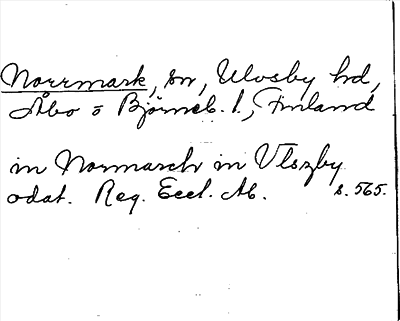 Norrmark, sn, Ulvsby hd,
Åbo o Björneb. l., Finland
in Normarch in Vlszby
odat. Reg. Eccl. Ab. s. 565.